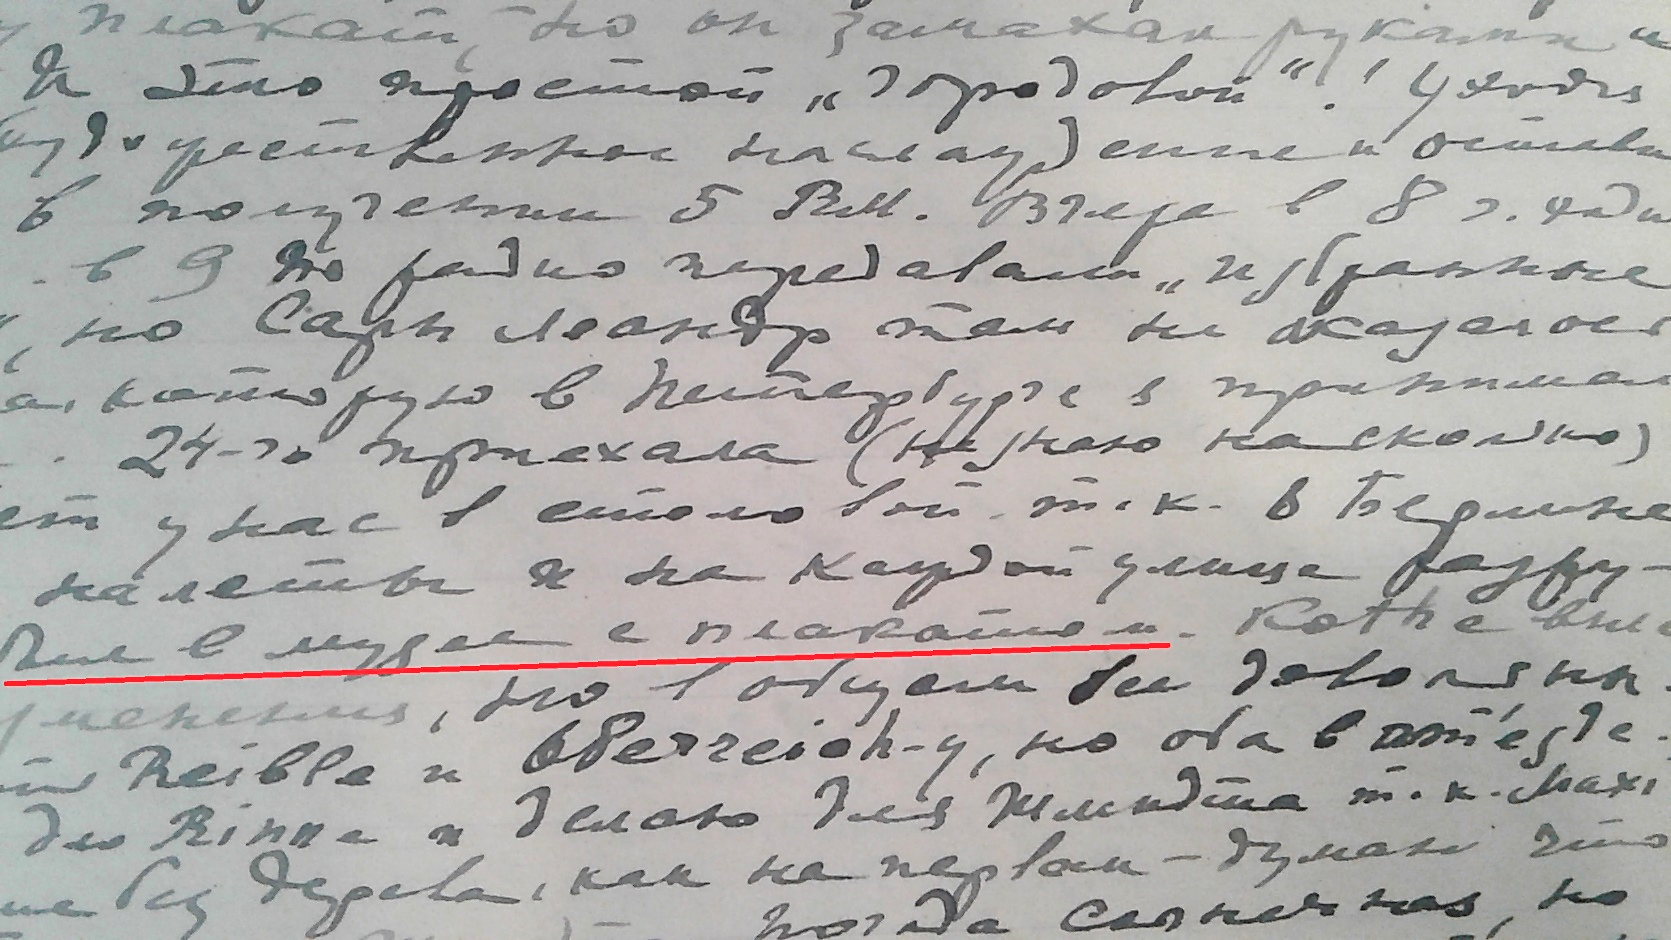 плакат, но он замахал руками и
И это простой „городовой“! Уходя
художественное наслаждение и
в получении 5 RM. Вчера в 8 ч.
. в 9 по радио передавали „избранные
, но Сары Леандр там не оказалось
которую в Петербурге я принимал
. 24-го приехала (не знаю насколько)
ет у нас в столовой т.к. в Берлине
налеты и на каждой улице разру-
был в музее с плакатом. Kothe
, но в общем был доволен
Reible и Oberreich-у, но оба в отъезде.
Rinne и делаю для Шмидта т.к. Maxi
без дерева, как на первом – думаю что
погода солнечная, но